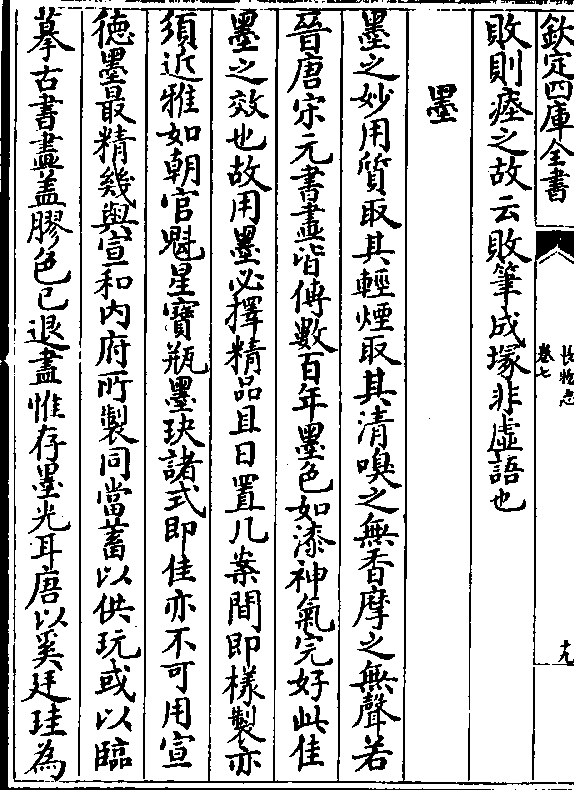 欽定四庫全書
長物志
卷七
十九
敗則瘞之故云敗筆成塚非虛語也
墨
墨之妙用質取其輕煙取其清嗅之無香摩之無聲若
晉唐宋元書畫皆傳數百年墨色如漆神氣完好此佳
墨之效也故用墨必擇精品且日置几案間即樣製亦
須近雅如朝官魁星寶瓶墨玦諸式即佳亦不可用宣
德墨最精幾與宣和内府所製同當蓄以供玩或以臨
摹古書畫蓋膠色已退盡惟存墨光耳唐以奚廷珪為